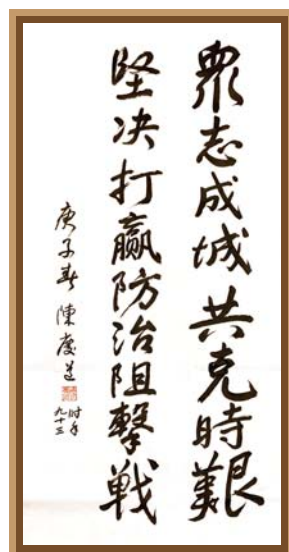 衆志成城共克時艱
堅决打赢防治阻擊戦
庚子春 陳慶
时年
九十三